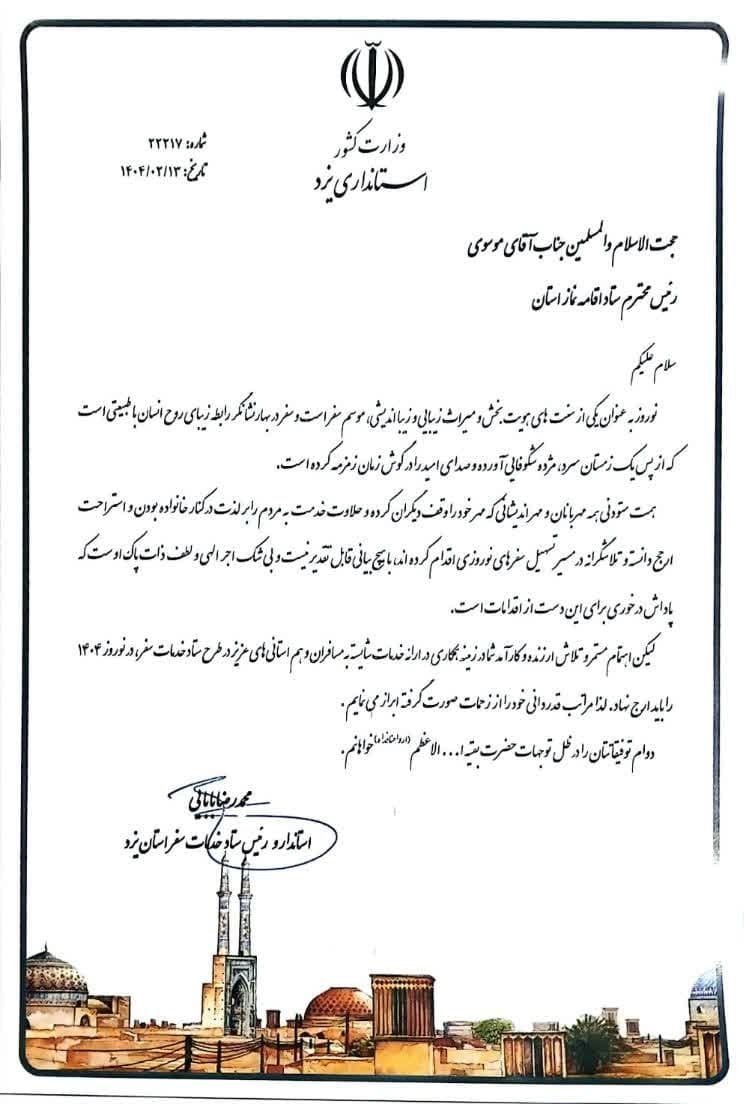 وزارت کشور
استانداری یزد
شماره: ۲۲۲۱۷
تاریخ: ۱۴۰۴/۰۲/۱۳
حجت الاسلام والمسلمین جناب آقای موسوی
رئیس محترم ستاد اقامه نماز استان
سلام علیکم
نوروز به عنوان یکی از سنت های هویت بخش و میراث زیبایی و زیبااندیشی، موسم سفر است و سفر در بهار نشانگر رابطه زیبای روح انسان با طبیعتی است
که از پس یک زمستان سرد، مژده شکوفایی آورده و صدای امید را در گوش زمان زمزمه کرده است.
همت ستودنی همه مهربانان و مهراندیشانی که مهر خود را وقف دیگران کرده و حلاوت خدمت به مردم را بر لذت در کنار خانواده بودن و استراحت
ارجح دانسته و تلاشگرانه در مسیر تسهیل سفرهای نوروزی اقدام کرده اند، با هیچ بیانی قابل تقدیر نیست و بی شک اجر الهی و لطف ذات پاک اوست که
پاداش درخوری برای این دست از اقدامات است.
لیکن اهتمام مستمر و تلاش ارزنده و کارآمد شما در زمینه همکاری در ارائه خدمات شایسته به مسافران و هم استانی های عزیز در طرح ستاد خدمات سفر، در نوروز ۱۴۰۴
را باید ارج نهاد. لذا مراتب قدردانی خود را از زحمات صورت گرفته ابراز می نمایم.
دوام توفیقاتتان را در ظل توجهات حضرت بقیه ا... الاعظم (ارواحنافداه) خواهانم.
محمدرضا بابائی
استاندار و رئیس ستاد خدمات سفر استان یزد